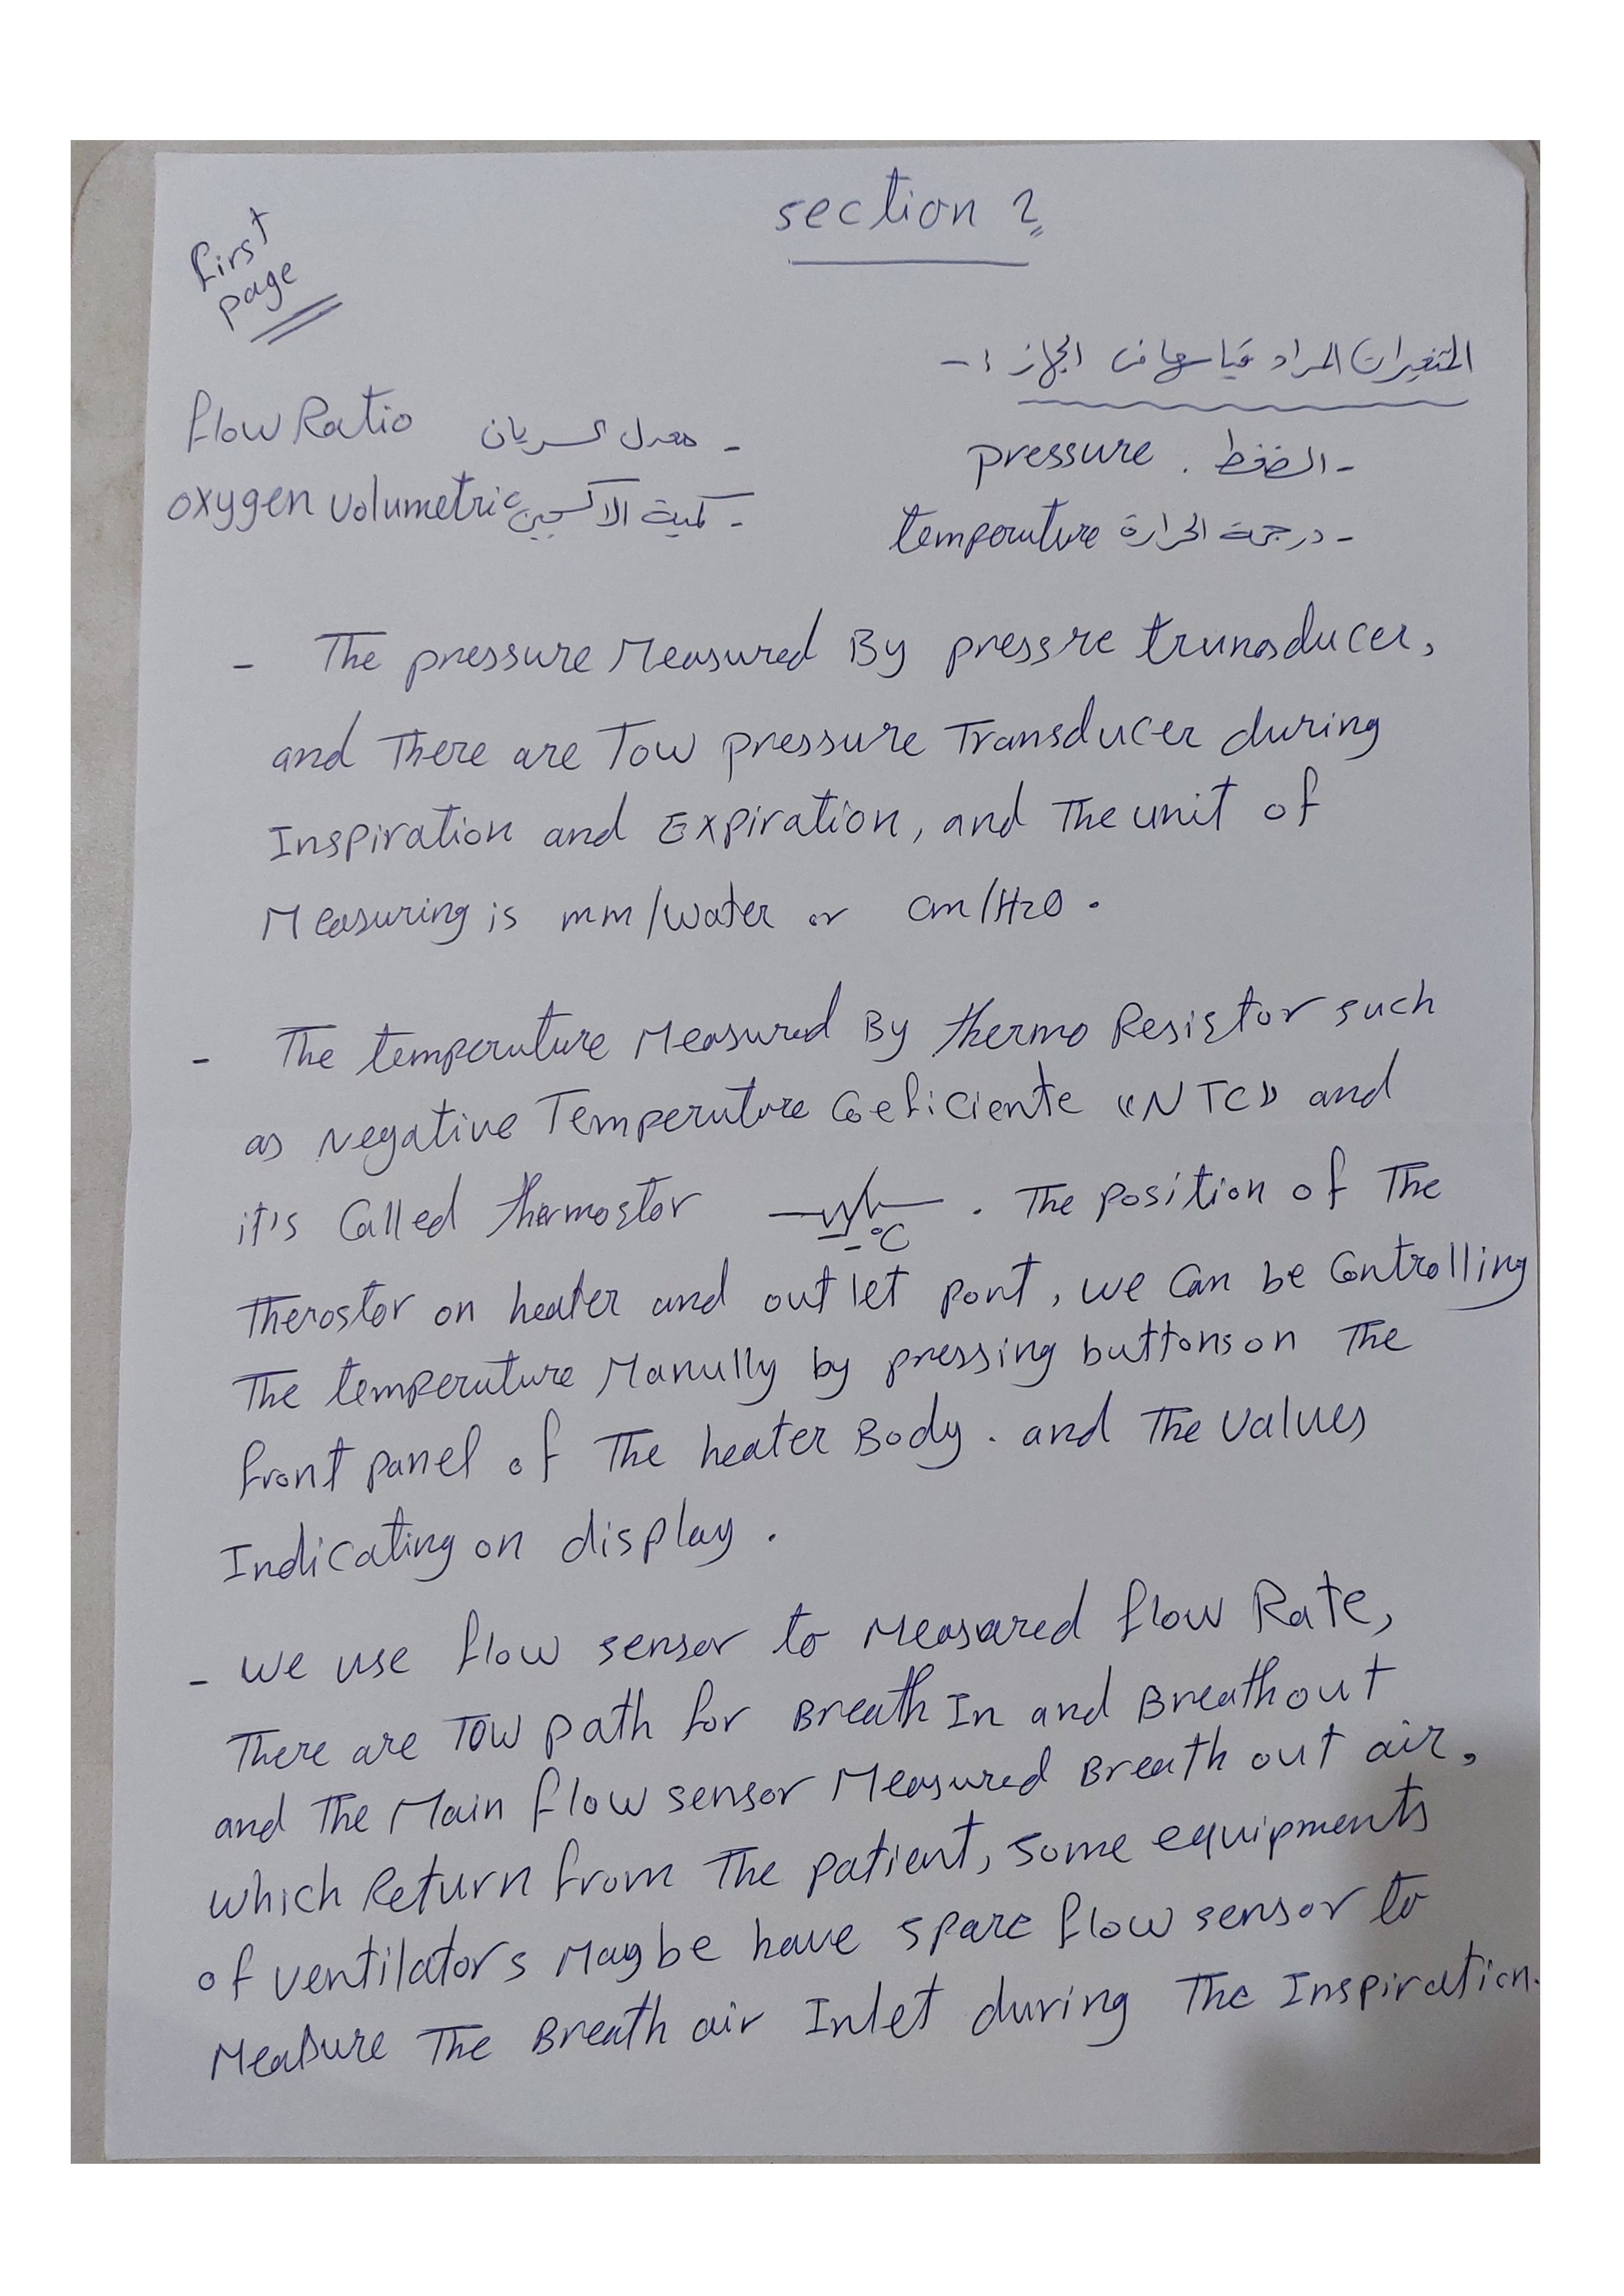 section 2
First
page
المتغيرات المراد قياسها في الجهاز :-
- الضغط . pressure
- معدل السريان flow Ratio
- درجة الحرارة temperature
- كمية الاكسجين oxygen volumetric
- The pressure Measured By pressre trunasducer,
and There are Tow pressure Transducer during
Inspiration and Expiration, and The unit of
Measuring is mm/water or cm/H2O .
- The temperuture Measured By thermo Resistor such
as Negative Temperuture Coeficiente «NTC» and
it's Called thermostor -°C . The position of The
Therostor on heater and out let pont, we Can be Controlling
The temperuture Manully by pressing buttons on The
front panel of The heater Body . and The values
Indicating on display .
- we use flow sensor to Measared flow Rate,
There are Tow path for Breath In and Breathout
and The Main flow sensor Measured Breath out air,
which Return from The patient, some equipments
of ventilators Maybe have spare flow sensor to
Measure The Breath air Inlet during The Inspiration.